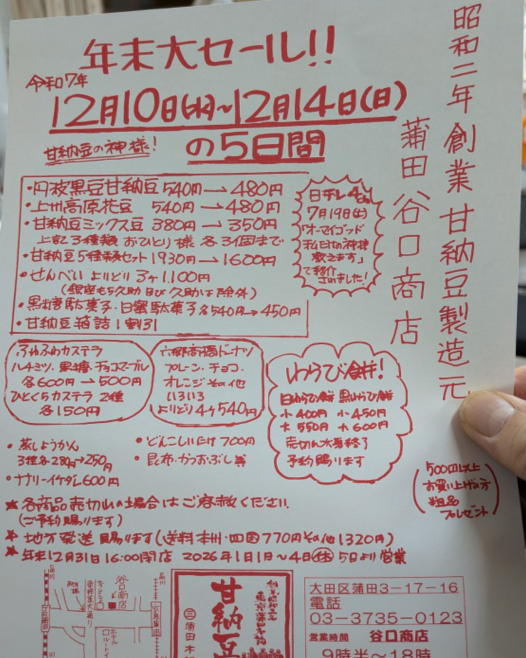 年末大セール!!
令和7年
12月10日(水)~12月14日(日)
の5日間
甘納豆の神様!
昭和二年創業 甘納豆製造元
蒲田 谷口商店
・丹波黒豆甘納豆 540円→480円
・上州高原花豆 540円→480円
・甘納豆ミックス豆 380円→350円
上記3種類おひとり様各3個まで
・甘納豆5種類セット1930円→1600円
・せんべいよりどり3ヶ1,100円
(銀座も久助及び久助は除外)
・黒糖駄菓子・白蜜駄菓子各540円→450円
・甘納豆箱詰1割引
日テレ4ch
7月19日(土)
「オーマイゴッド
私だけの神様
教えます」
で紹介
されました!
ふわふわカステラ
ハチミツ、黒糖、チョコマーブル
各600円→500円
ひとくちカステラ 2種
各150円
六郷高橋ドーナツ
プレーン・チョコ・
オレンジその他
いろいろ
よりどり4ヶ540円
わらび餅!
白わらび餅 黒わらび餅
小400円 小450円
大550円 大600円
売切れ次第終了
予約賜ります
・蒸しようかん
3種各280円→250円
・ナナリーイケダん600円
・どんこしいたけ700円
・昆布・かつおぶし等
500円以上
お買い上げの方
粗品
プレゼント
★各商品売切れの場合はご容赦ください
(ご予約賜ります)
★地方発送賜ります(送料本州・四国770円その他1320円)
★年末12月31日16:00閉店 2026年1月1日~4日(休)5日より営業
谷口商店
甘納豆
蒲田
大田区蒲田3-17-16
電話
03-3735-0123
営業時間 谷口商店
9時半~18時